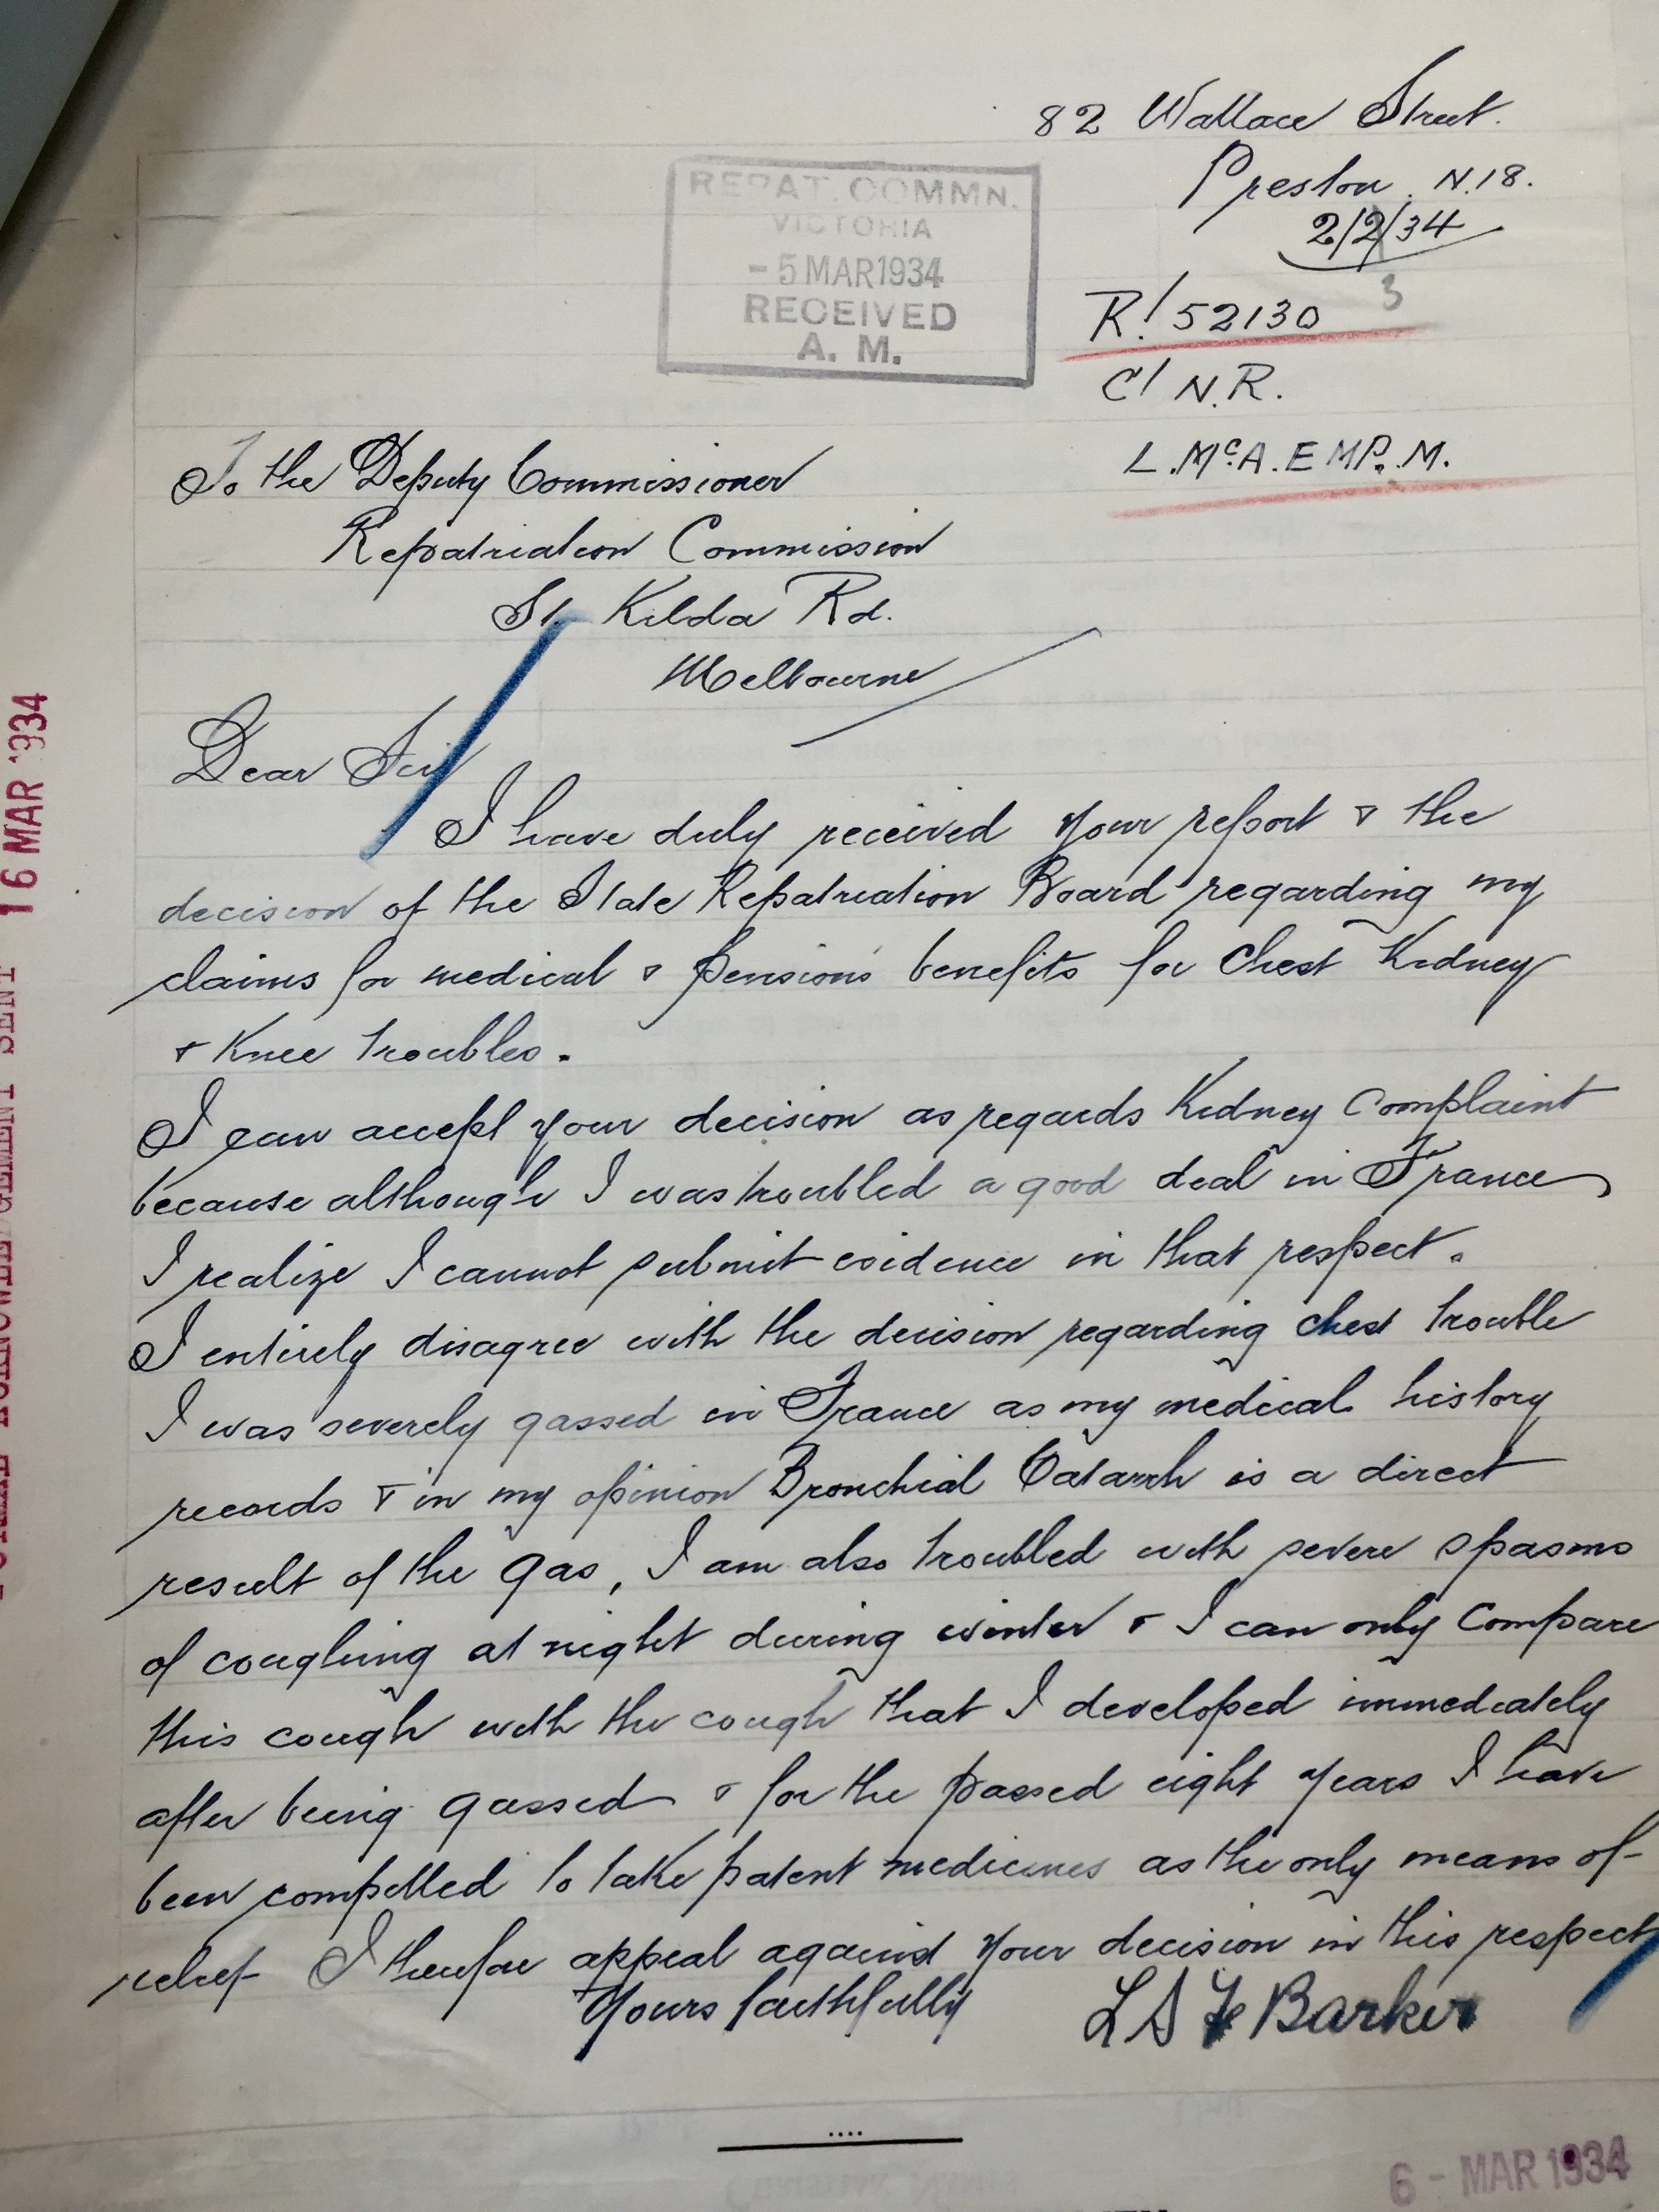 82 Wallace Street.
Preston. N.18.
2/2/34
3
REPAT. COMMN.
VICTORIA
- 5 MAR 1934
RECEIVED
A. M.
R/ 52130
C/ N.R.
L.McA. E MP. M.
To the Deputy Commissioner
Repatriation Commission
St. Kilda Rd.
Melbourne
Dear Sir
I have duly received your report & the
decision of the State Repatriation Board regarding my
claims for medical & pensions benefits for Chest Kidney
& Knee troubles.
I can accept your decision as regards Kidney Complaint
because although I was troubled a good deal in France
I realize I cannot submit evidence in that respect.
I entirely disagree with the decision regarding chest trouble
I was severely gassed in France as my medical history
records & in my opinion Bronchial Catarrh is a direct
result of the gas, I am also troubled with severe spasms
of coughing at night during winter & I can only compare
this cough with the cough that I developed immediately
after being gassed & for the passed eight years I have
been compelled to take patent medicines as the only means of
relief I therefore appeal against your decision in this respect
Yours faithfully
L S F Barker
6 - MAR 1934
ACKNOWLEDGEMENT SENT 16 MAR 1934